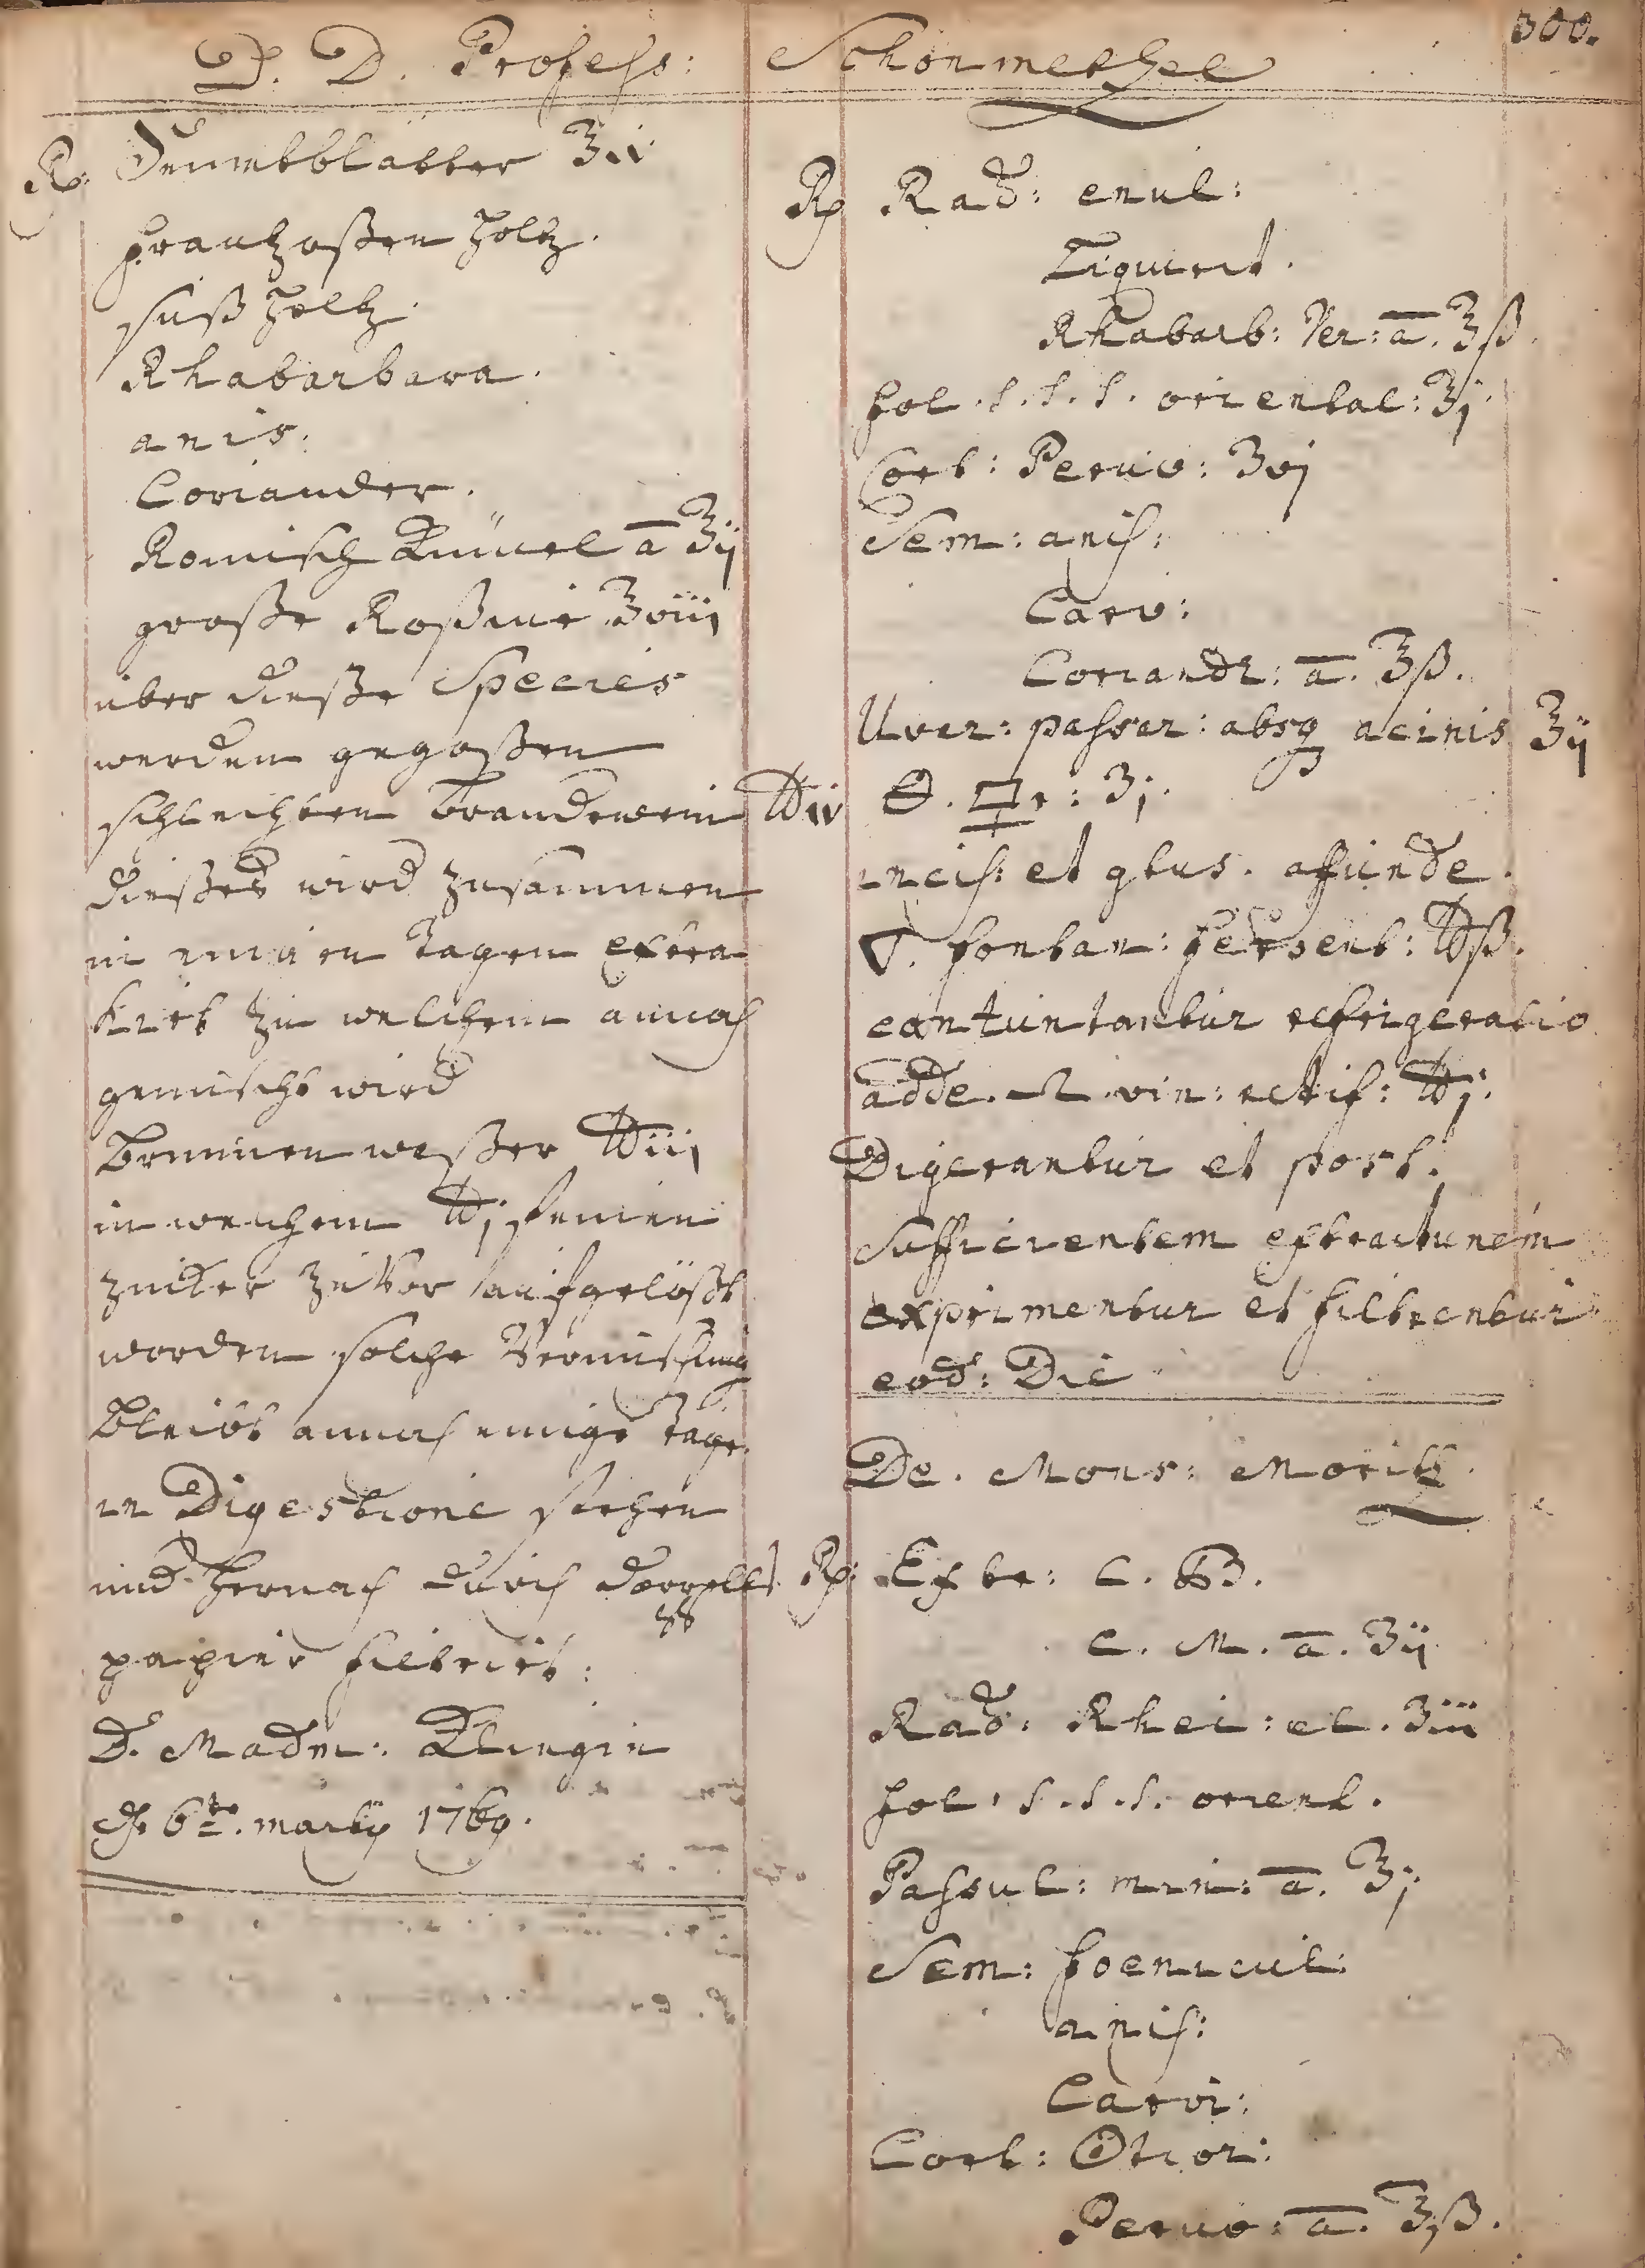 D. D. Profess: Schönmetzel
300.
Rp. Sennetblätter ℥ii
frantzoßen holtz.
süß holtz.
Rhabarbara.
anis:
Coriander.
Romisch Kümel a ʒij
große Roßine ℥viii
über dieße Species
werden gegoßen
schlechten brandewein ℔iv
dießes wird zusammen
in einigen tagen extra
hirt zu welchem annoch
gemischt wird
brunnen waßer ℔iii
in welchem ℔j feinen
zucker zuvor aufgelößt
worden solche Vermischung
bleibt annoch einige tage
in Digestione stehen
und hernach durch doppelt
papier filtrirt:
D. Madm: Klingin
d. 6te. marty 1769.
Rp Rad: enul:
Liquirit.
Rhabarb: Ver: a. ℥ß.
fol. S. S. S. oriental: ℥j.
Cort: Peruv: ʒvj
Sem: anis:
Carv:
Coriandr: a. ℥ß.
Uver: passar: absq acinis ℥ij
🜔. ri: ʒj.
incis: et gtus. affunde.
▽. fontan: fervent: ℔ß.
refrigeratio
adde. vin: rectif: ℔j.
Digerantur et post.
sufficientem extractionem
exprimentur et filtrentur
eod: Die
De. Mons: Moritz.
Rp: Extr: C. B.
C. M. a. ʒii
Rad: Rhei: el. ʒiii
fol. S. S. S. orient.
Passul: min: a. ℥j.
Sem: foenicul:
anis:
Carvi:
Cort: Citrior:
Peruv: a. ℥ß.